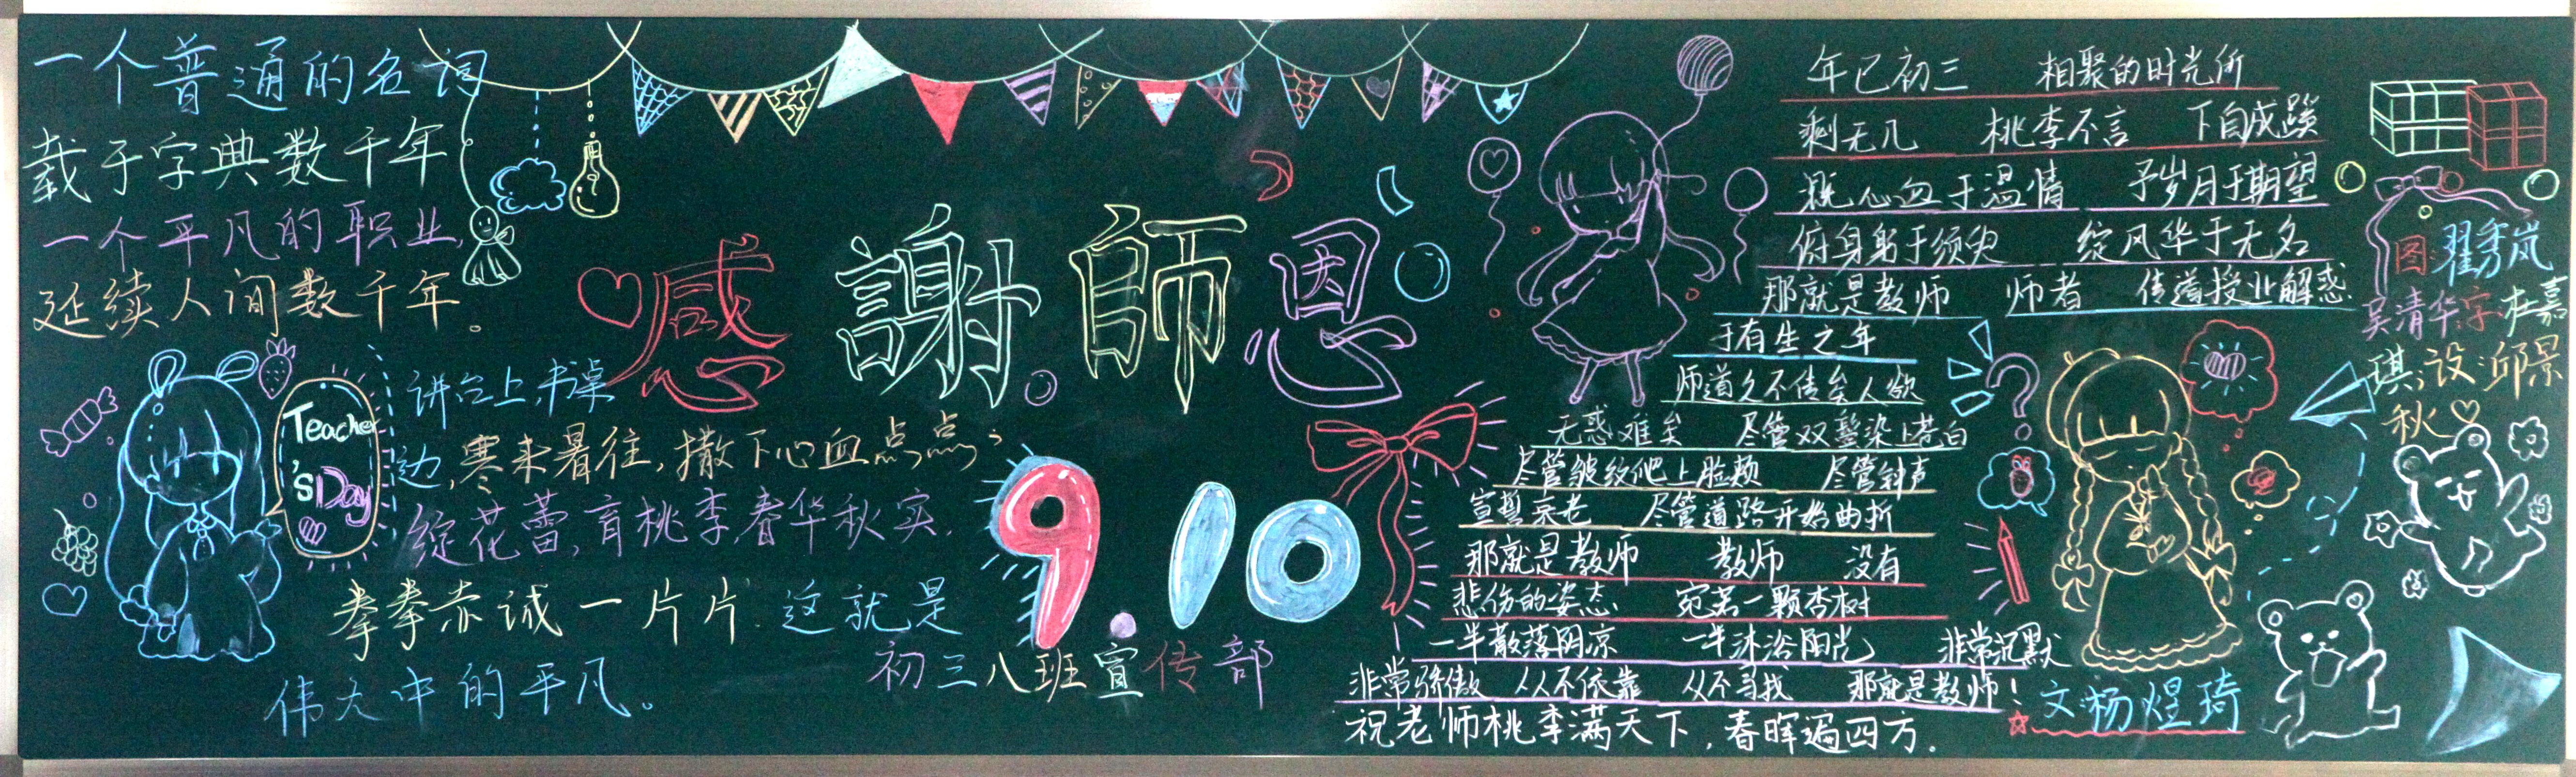 一个普通的名词
载于字典数千年
一个平凡的职业,
延续人间数千年。
Teacher
'sDay
讲台上,书桌
边,寒来暑往,撒下心血点点;
绽花蕾,育桃李,春华秋实,
拳拳赤诚一片片.这就是
伟大中的平凡。
感謝師恩
9.10
初三八班宣传部
年已初三 相聚的时光所
剩无几 桃李不言 下自成蹊
溉心血于温情 予岁月于期望
俯身躬于须臾 绽风华于无名
那就是教师 师者 传道授业解惑
于有生之年
师道久不传矣人欲
无惑难矣 尽管双鬓染上苍白
尽管皱纹爬上脸颊 尽管钟声
宣誓衰老 尽管道路开始曲折
那就是教师 教师 没有
悲伤的姿态 宛若一颗杏树
一半散落阴凉 一半沐浴阳光 非常沉默
非常骄傲 从不依靠 从不寻找 那就是教师!
祝老师桃李满天下,春晖遍四方.
图:翟秀岚
吴清华字:杜嘉
琪;设:邱景
秋
文:杨煜琦